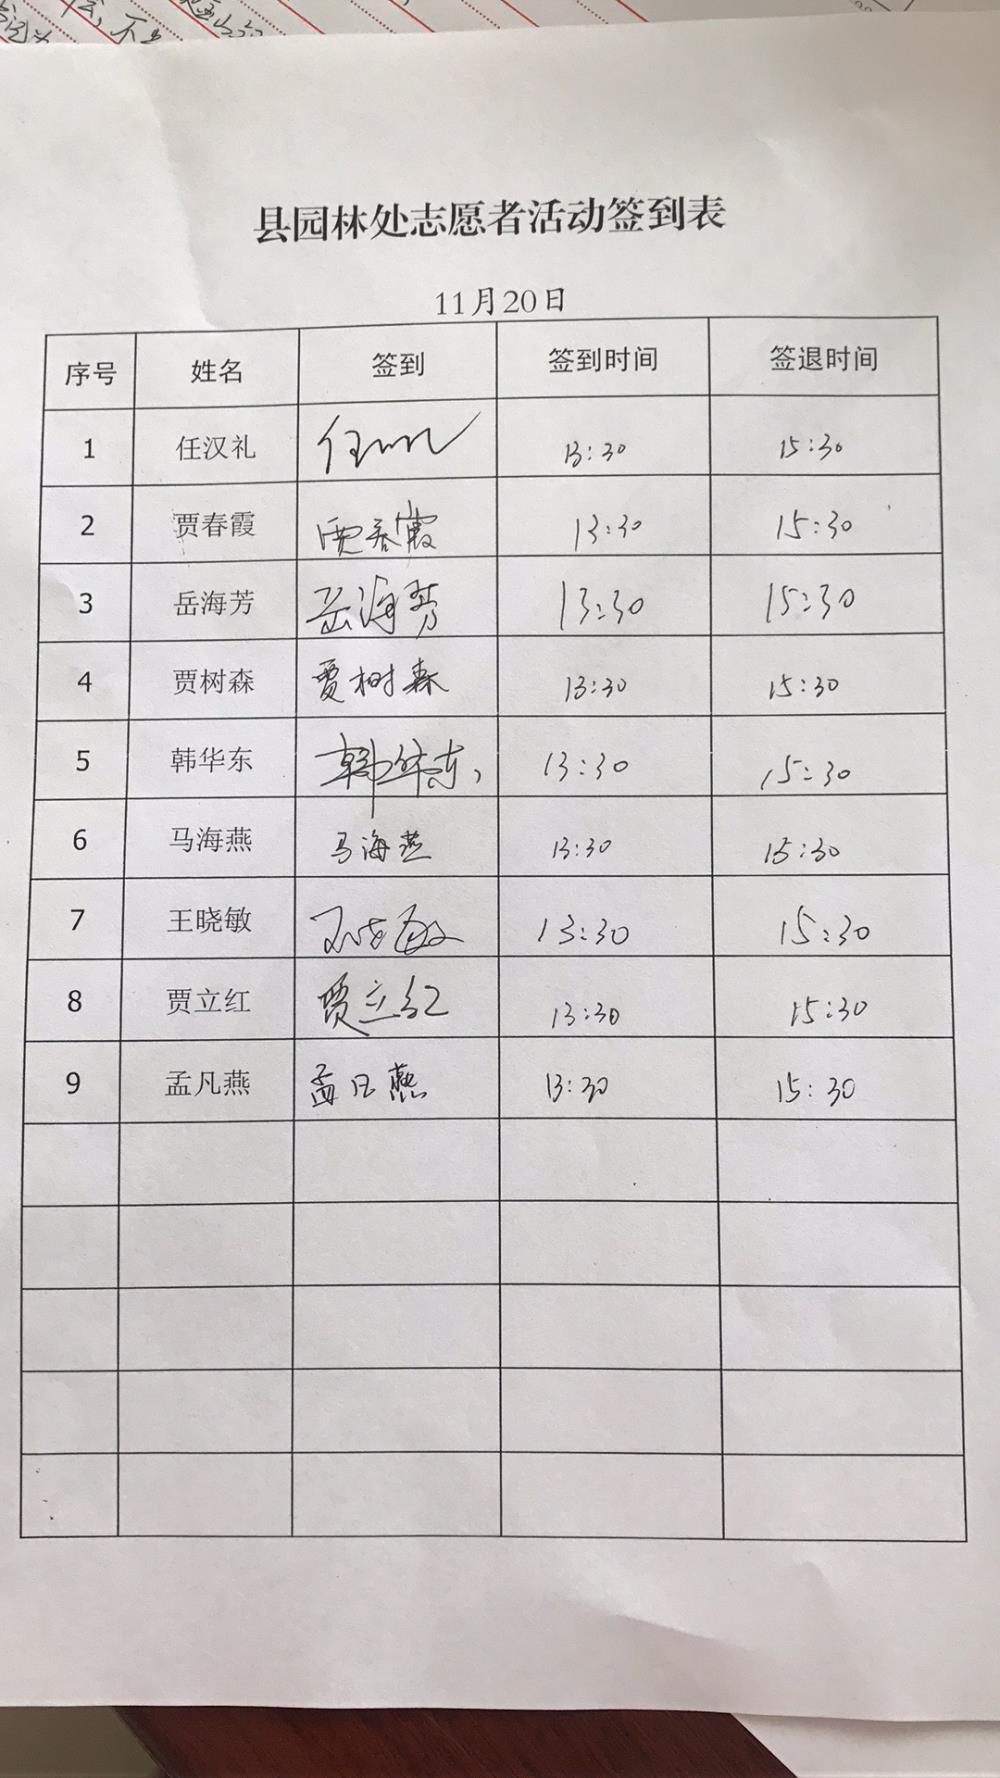 县园林处志愿者活动签到表
11月20日
序号 姓名 签到 签到时间 签退时间
1 任汉礼 任汉礼 13:30 15:30
2 贾春霞 贾春霞 13:30 15:30
3 岳海芳 岳海芳 13:30 15:30
4 贾树森 贾树森 13:30 15:30
5 韩华东 韩华东 13:30 15:30
6 马海燕 马海燕 13:30 15:30
7 王晓敏 王晓敏 13:30 15:30
8 贾立红 贾立红 13:30 15:30
9 孟凡燕 孟凡燕 13:30 15:30